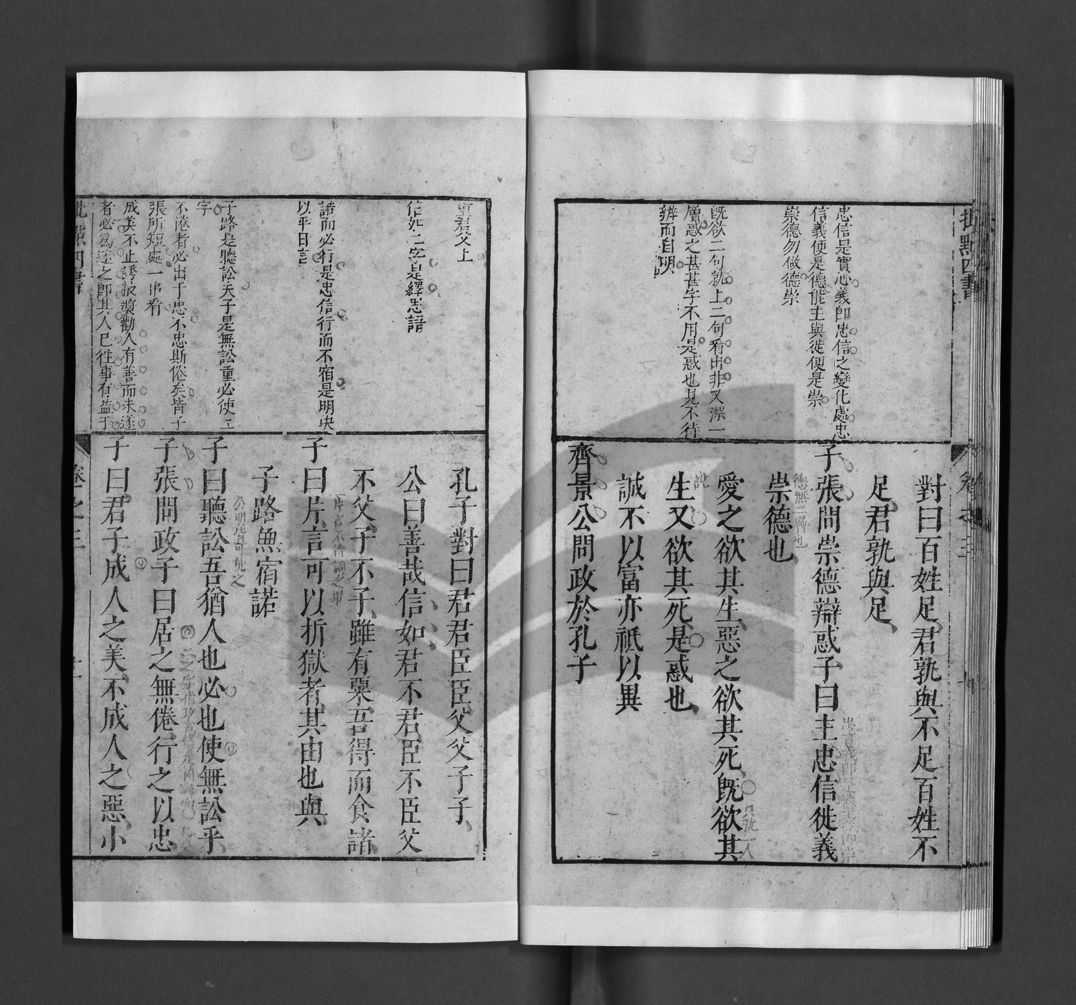 批點四書
忠信是實心義即忠信之變化處忠
信義便是德能主與徙便是崇
崇德勿做德崇
既欲二句就上二句看出非又深一
層惑之甚甚字不用是惑也見不待
辨而自明
卷之三
對曰百姓足君孰與不足百姓不
足君孰與足
子張問崇德辯惑子曰主忠信徙義
崇德也
愛之欲其生惡之欲其死既欲其
生又欲其死是惑也
誠不以富亦祇以異
齊景公問政於孔子
章君父上
信如二字是繹思語
諾而必行是忠信行而不宿是明決
以平日言
子路是聽訟夫子是無訟重必使二
字
不倦者必出于忠不忠斯倦矣皆子
張所短處一串看
成美不止誘掖奬勸人有善而未遂
者必為遂之即其人已往事有益于
批點四書
孔子對曰君君臣臣父父子子
公曰善哉信如君不君臣不臣父
不父子不子雖有粟吾得而食諸
子曰片言可以折獄者其由也與
子路無宿諾
子曰聽訟吾猶人也必也使無訟乎
子張問政子曰居之無倦行之以忠
子曰君子成人之美不成人之惡小
卷之三